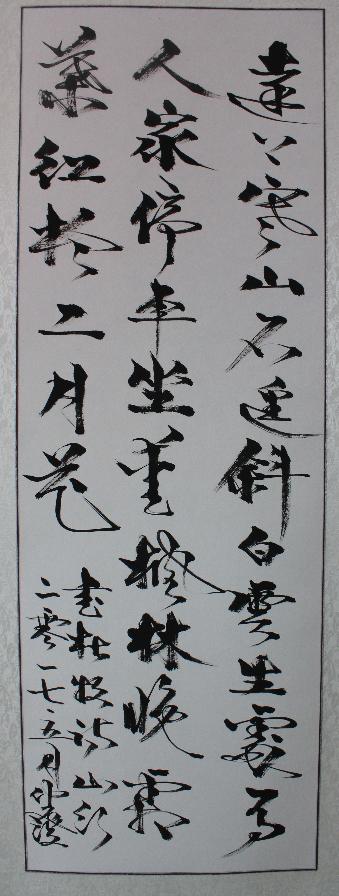 遠上寒山石徑斜白雲生處有
人家停車坐愛楓林晚霜
葉紅於二月花
書杜牧詩山行
二零一七年五月